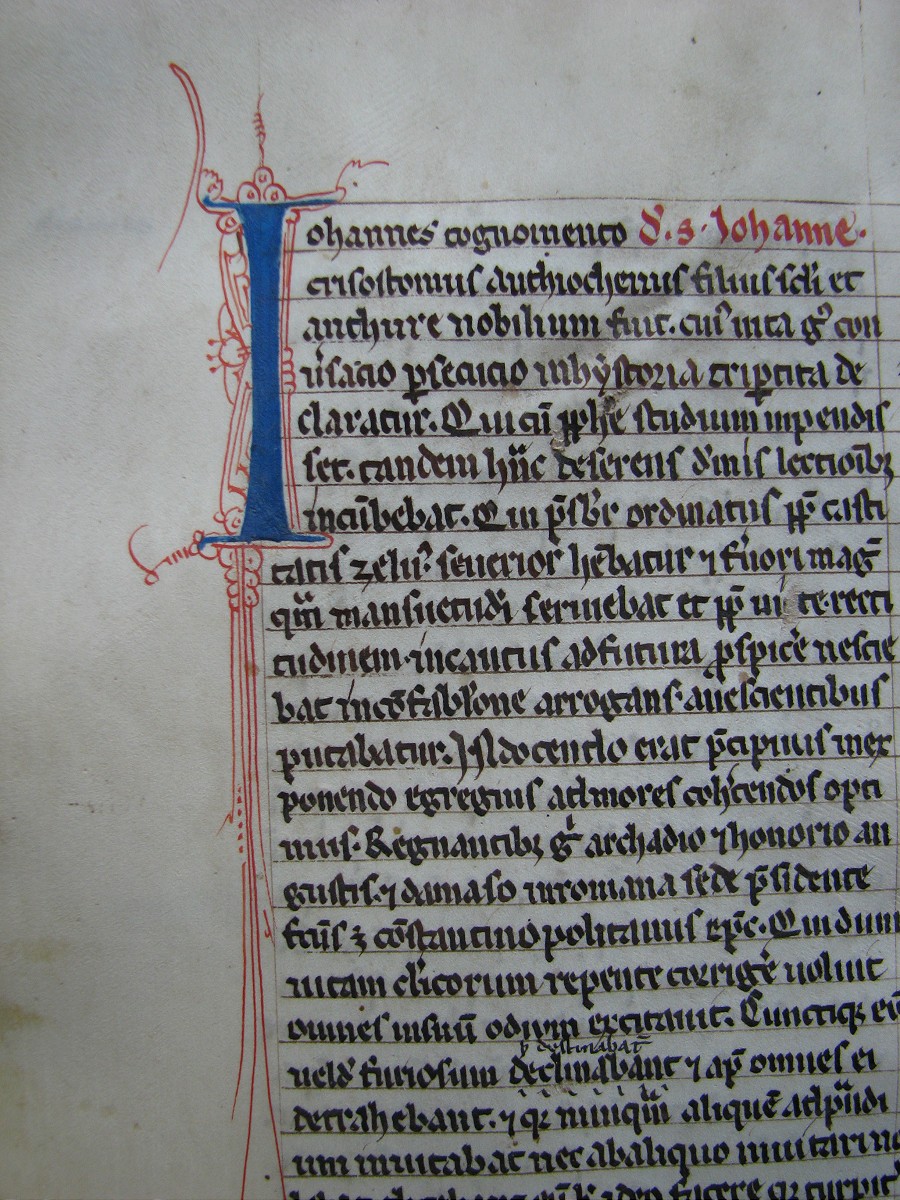 Iohannes cognomento d'. s. Iohanne.
crisostomus anthiochenus filius scd'i et
anthure nobilium fuit. cui' uita g'o con
u'satio p̱secucio in hẏstoria trip̱tita de
claratur. Qui cū ꝓphē studium inpendis
set. tandem hūc deserens d'inis lectioībꝫ
incūbebat. Qui p̄sbr̄ ordinatus ꝓp̄ casti
tatis zelū. seuerior hēbatur ⁊ f'uori maḡ
q̄m mansuetudī seruiebat et ꝓp̄ uite recti
tudinem. incautus ad futura ꝓspic'e nescie
bat in cōfab'lone arrogans. a nescientibus
putabatur. In docendo erat p̄cipuus in ex
ponendo egregius ad mores coh'cendos opti
mus. Regnantibꝫ g̊ archadio ⁊ honorio au
gustis. ⁊ damaso in romana sede p̄sidente
fcūs ꝫ cōstantinopolitanus ep̄c. Qui dum
uitam cl'icorum repente corrig'e uoluit
omnes in suū odium excitauit. Cunctiqꝫ eū
uelud furiosum declinabant ⁊ ap̄ omnes ei
p̄destinabāt
detrahebant. ⁊ qꝛ nūquā aliquē ad p̄ndi
um inuitabat nec ab aliquo inuitari no